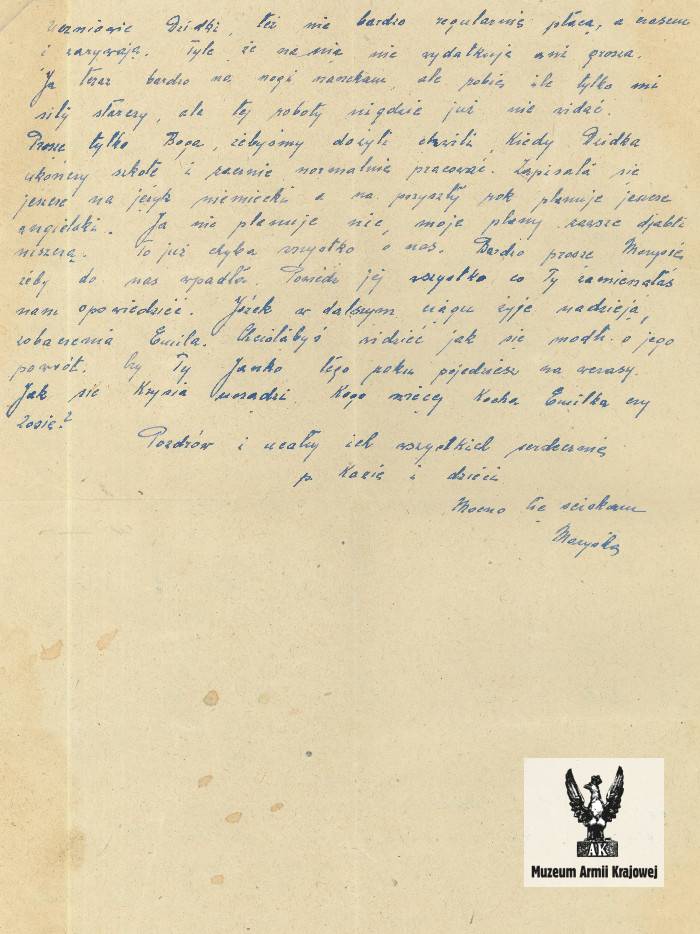 uczniowie Dzidki, też nie bardzo regularnie płacą, a czasem
i zarywają. Tyle że na nią nie wydatkuję ani grosza.
Ja teraz bardzo na nogi narzekam, ale robię ile tylko mi
siły starczy, ale tej roboty nigdzie już nie widać.
Proszę tylko Boga, żebyśmy dożyli chwili, kiedy Dzidka
ukończy szkołę i zacznie normalnie pracować. Zapisała się
jeszcze na język niemiecki a na przyszły rok planuje jeszcze
angielski. Ja nie planuję nic, moje plany zawsze djabli
niszczą. To już chyba wszystko o nas. Bardzo proszę Marysię,
żeby do nas wpadła. Powiedz jej wszystko co Ty zamierzałaś
nam opowiedzieć. Józek w dalszym ciągu żyje nadzieją,
zobaczenia Emila. Chciałabyś widzieć jak się modli o jego
powrót. Czy Ty Janko tego roku pojedziesz na wczasy.
Jak się Krysia urządzi. Kogo więcej kocha Emilka czy
Zosię?
Pozdrów i ucałuj ich wszystkich serdecznie
p. Kazię i dzieci
Mocno Cię ściskam
Maryśka
AK
Muzeum Armii Krajowej